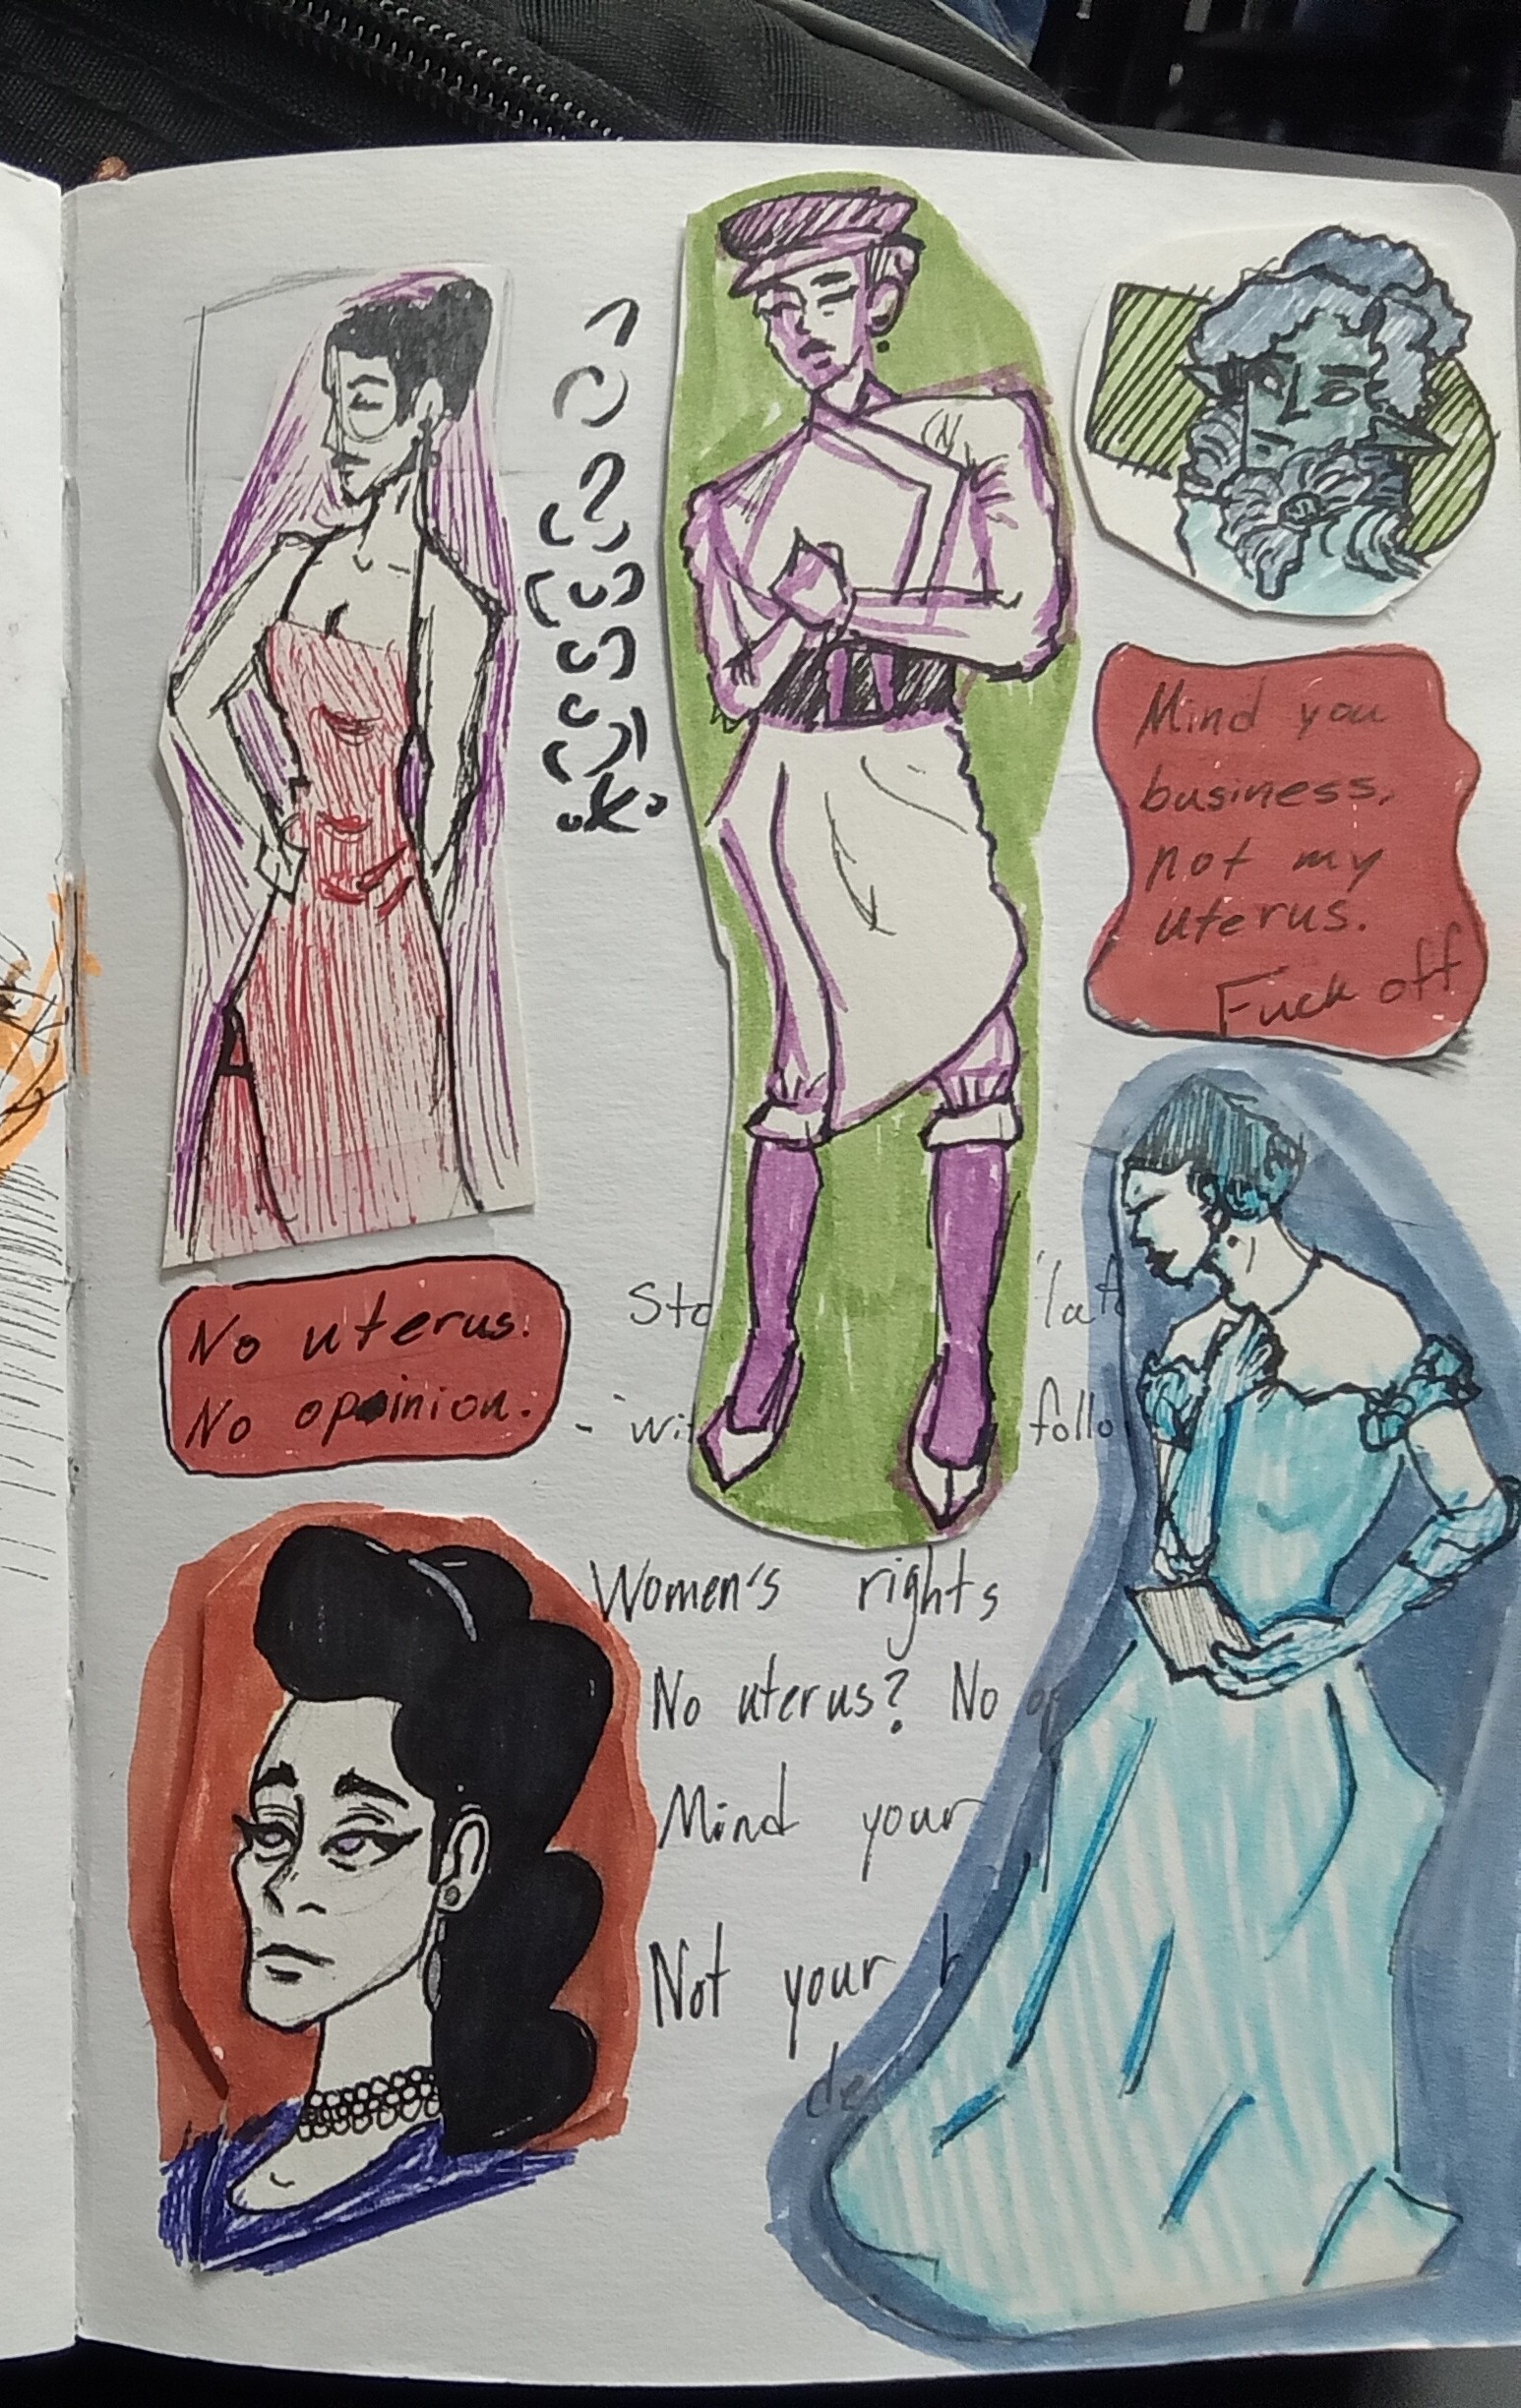 Mind you
business,
not my
uterus.
Fuck off
No uterus.
No opinion.
Women's rights
No uterus? No
Mind your
Not your